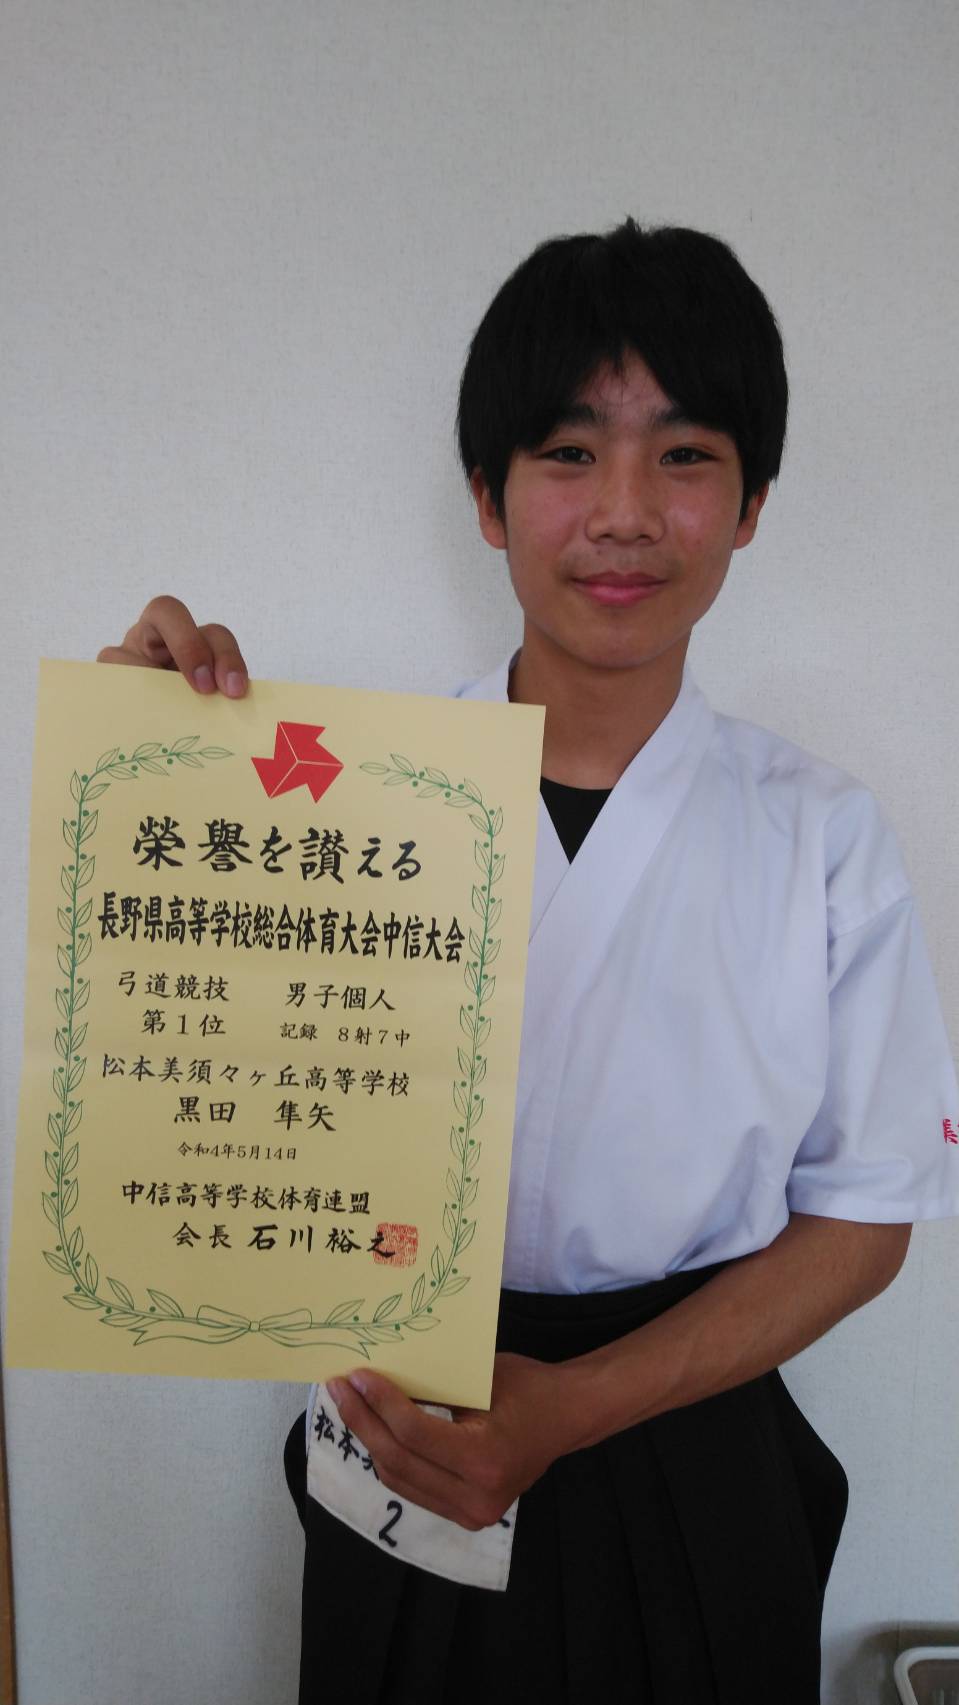 榮譽を讃える
長野県高等学校総合体育大会中信大会
弓道競技　男子個人
第１位　記録　８射７中
松本美須々ヶ丘高等学校
黒田　隼矢
令和4年5月14日
中信高等学校体育連盟
会長 石川裕之
松本
2